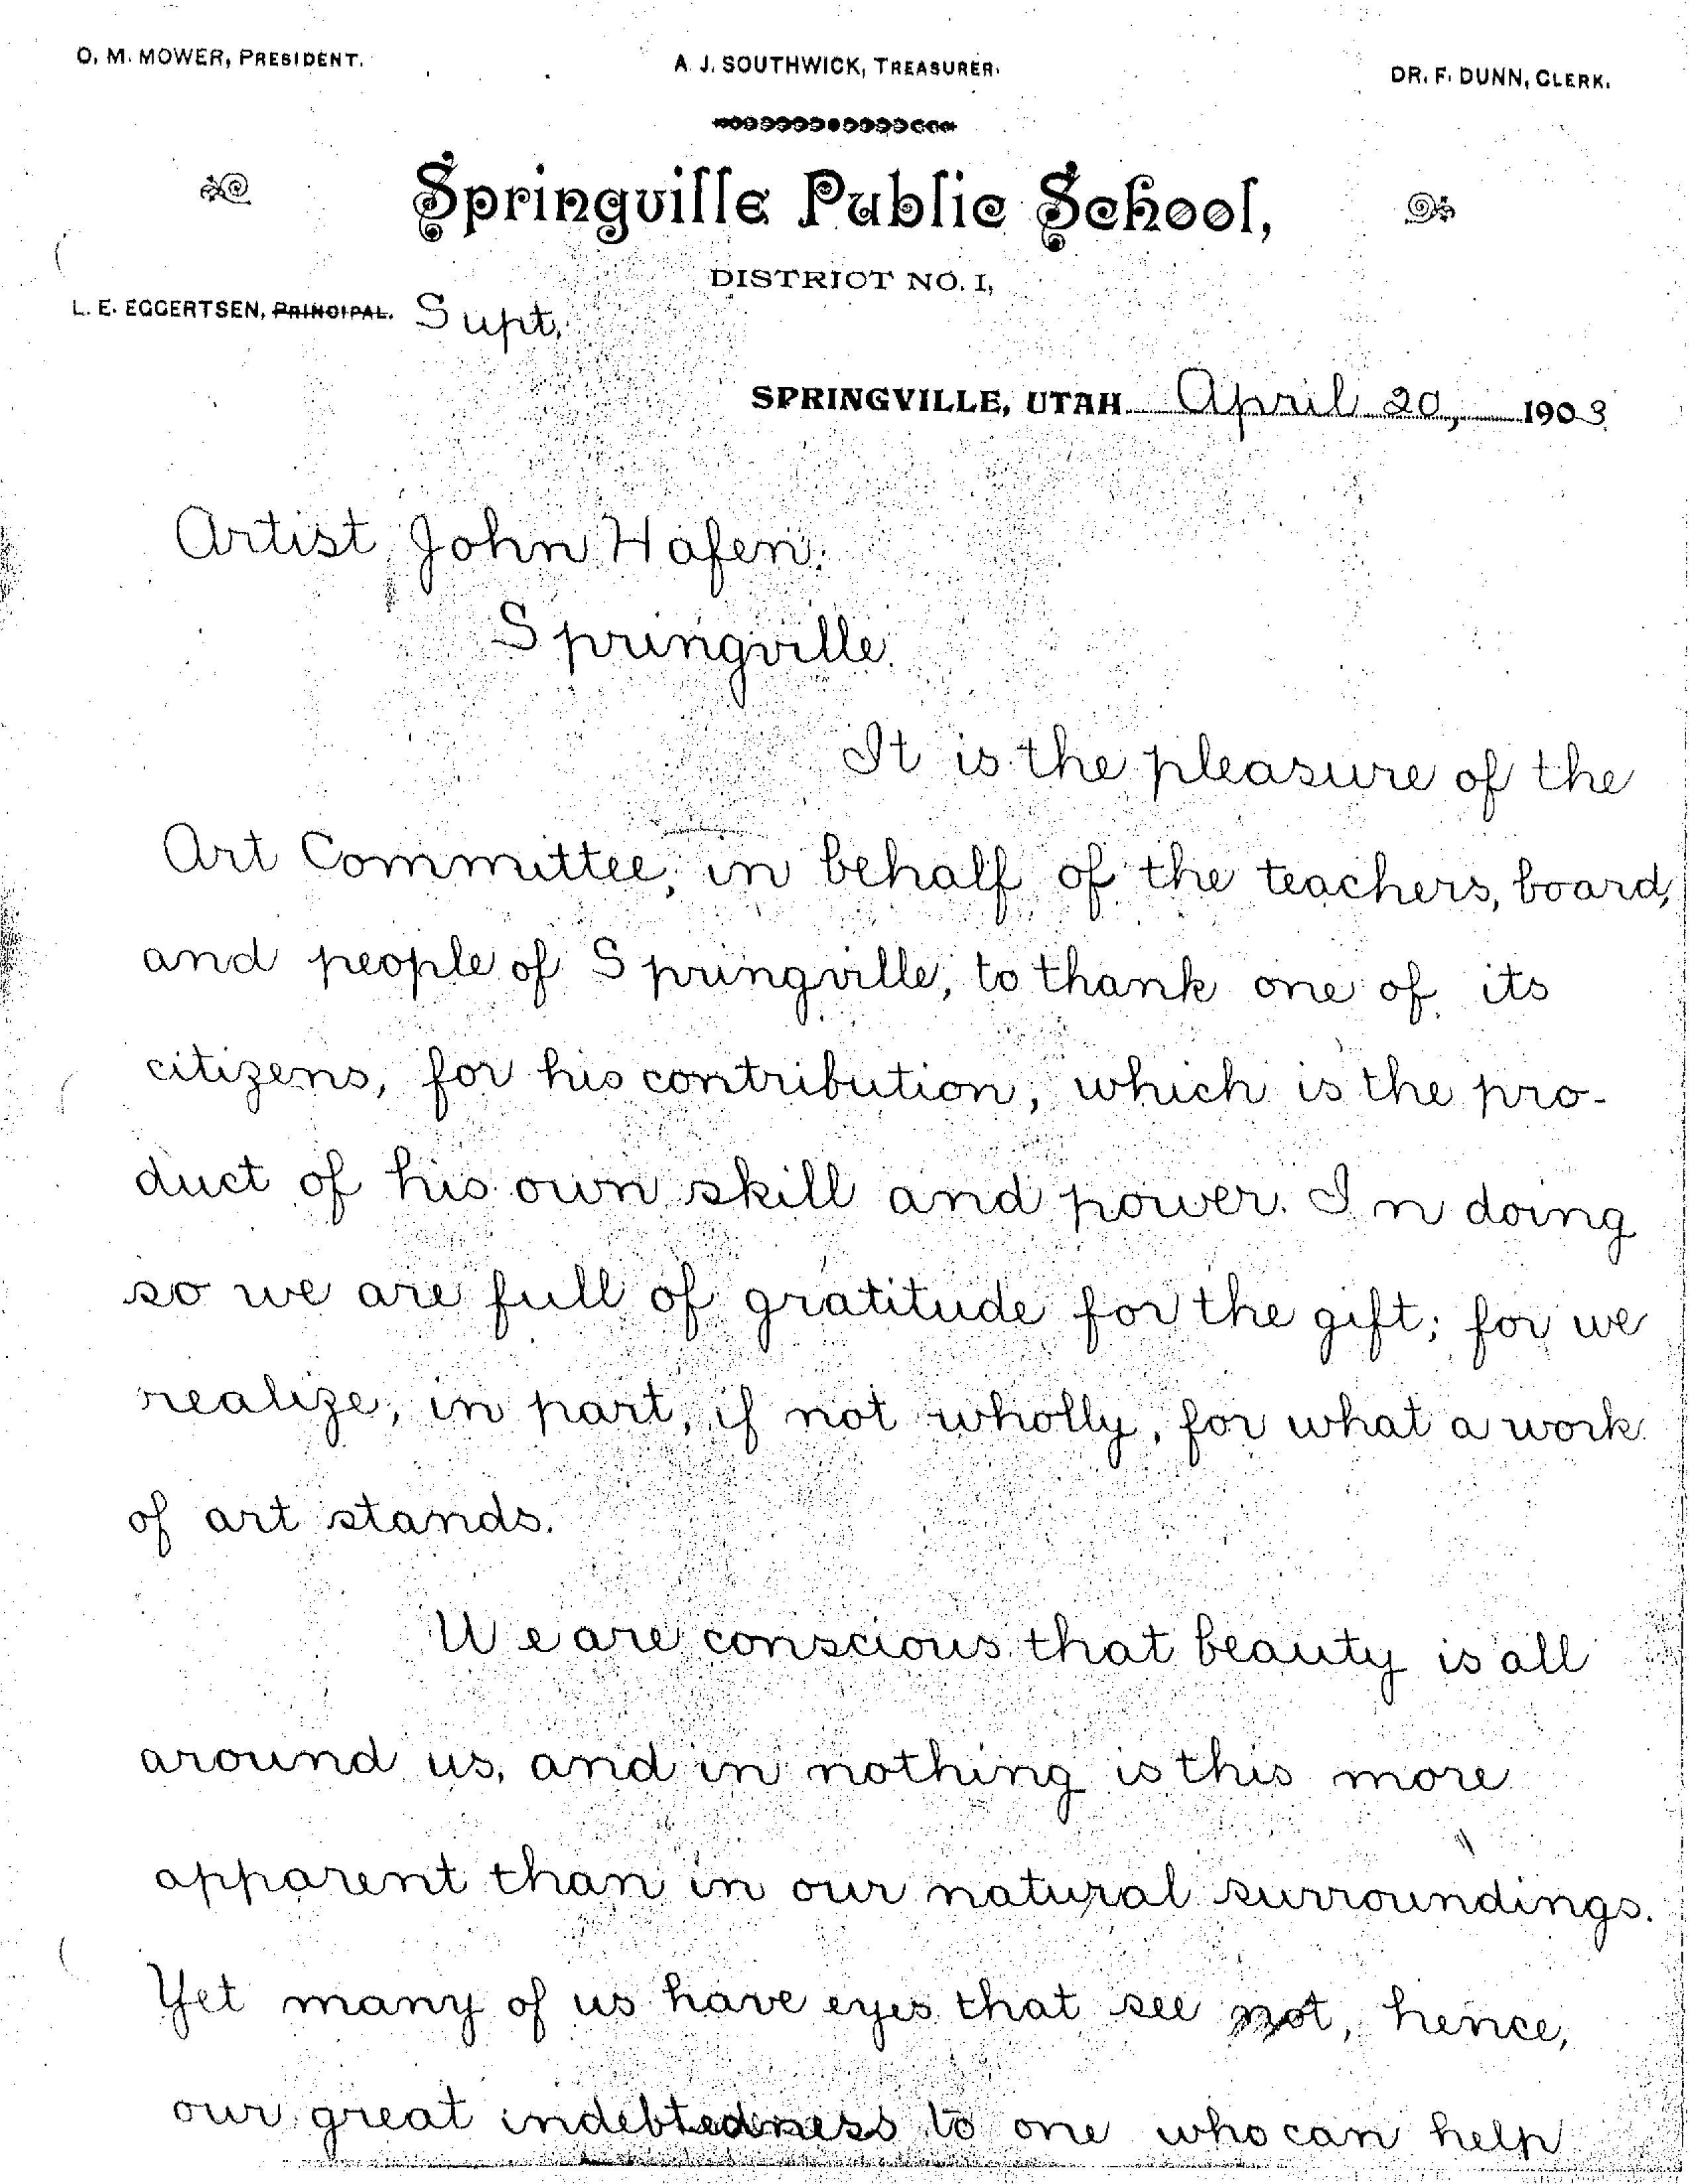 O. M. MOWER, PRESIDENT.
A. J. SOUTHWICK, TREASURER.
DR. F. DUNN, CLERK.
Springville Public School,
DISTRICT NO. 1,
L. E. EGGERTSEN, PRINCIPAL. Supt.
SPRINGVILLE, UTAH April 20, 1903.
Artist John Hafen:
Springville.
It is the pleasure of the
Art Committee, in behalf of the teachers, board,
and people of Springville, to thank one of its
citizens, for his contribution, which is the pro-
duct of his own skill and power. In doing
so we are full of gratitude for the gift; for we
realize, in part, if not wholly, for what a work
of art stands.
We are conscious that beauty is all
around us, and in nothing is this more
apparent than in our natural surroundings.
Yet many of us have eyes that see not, hence,
our great indebtedness to one who can help